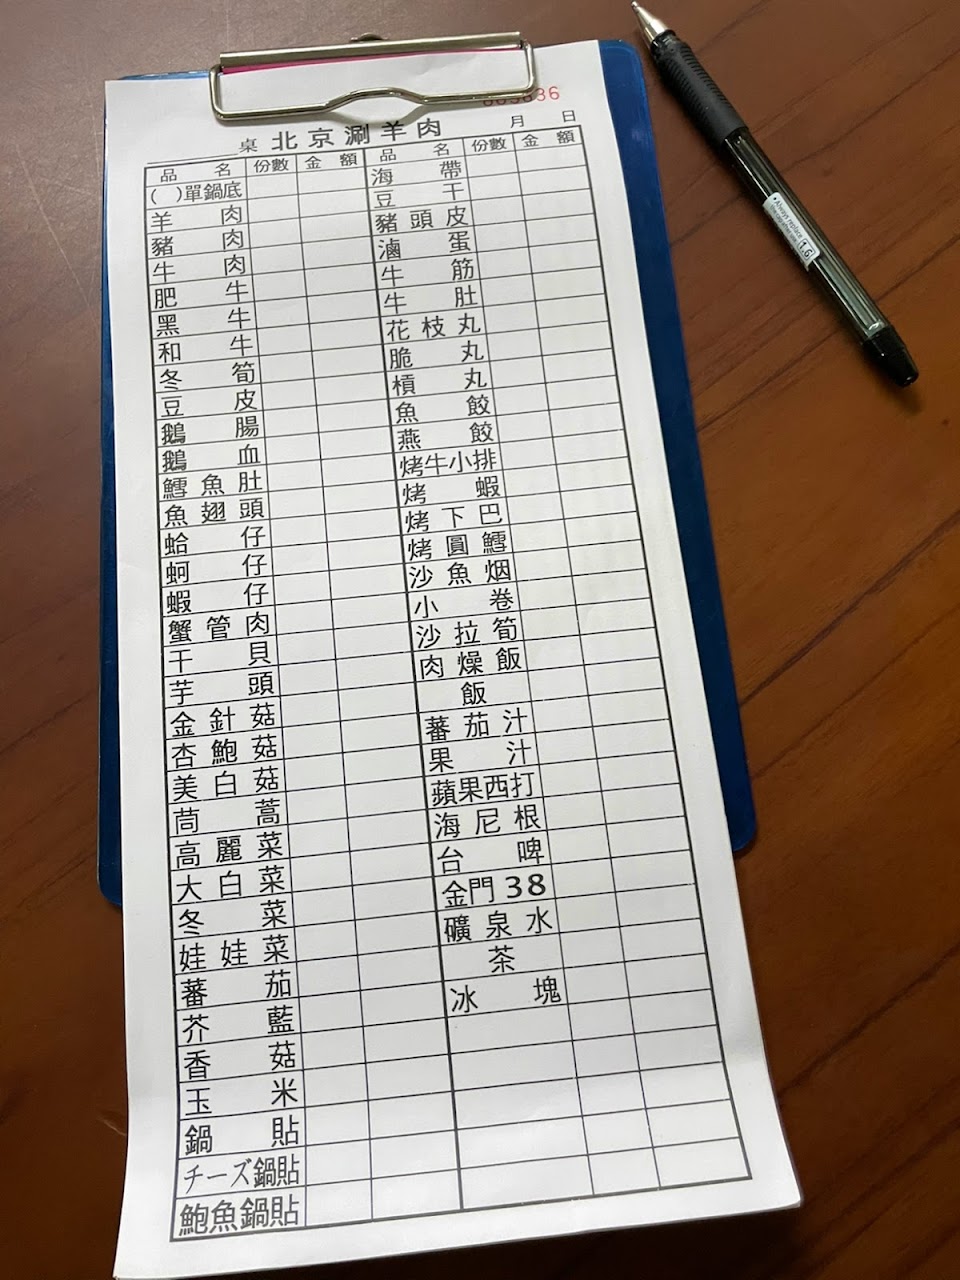 桌 北京涮羊肉 月 日
品名 份數 金額 品名 份數 金額
( )單鍋底
羊肉
豬肉
牛肉
肥牛
黑牛
和牛
冬筍
豆皮
鵝腸
鵝血
鱈魚肚
魚翅頭
蛤仔
蚵仔
蝦仔
蟹管肉
干貝
芋頭
金針菇
杏鮑菇
美白菇
茼蒿
高麗菜
大白菜
冬菜
娃娃菜
蕃茄
芥藍
香菇
玉米
鍋貼
チーズ鍋貼
鮑魚鍋貼
海帶
豆干
豬頭皮
滷蛋
牛筋
牛肚
花枝丸
脆丸
槓丸
魚餃
燕餃
烤牛小排
烤蝦
烤下巴
烤圓鱈
沙魚烟
小卷
沙拉筍
肉燥飯
飯
蕃茄汁
果汁
蘋果西打
海尼根
台啤
金門38
礦泉水
茶
冰塊
Always replace
1.6